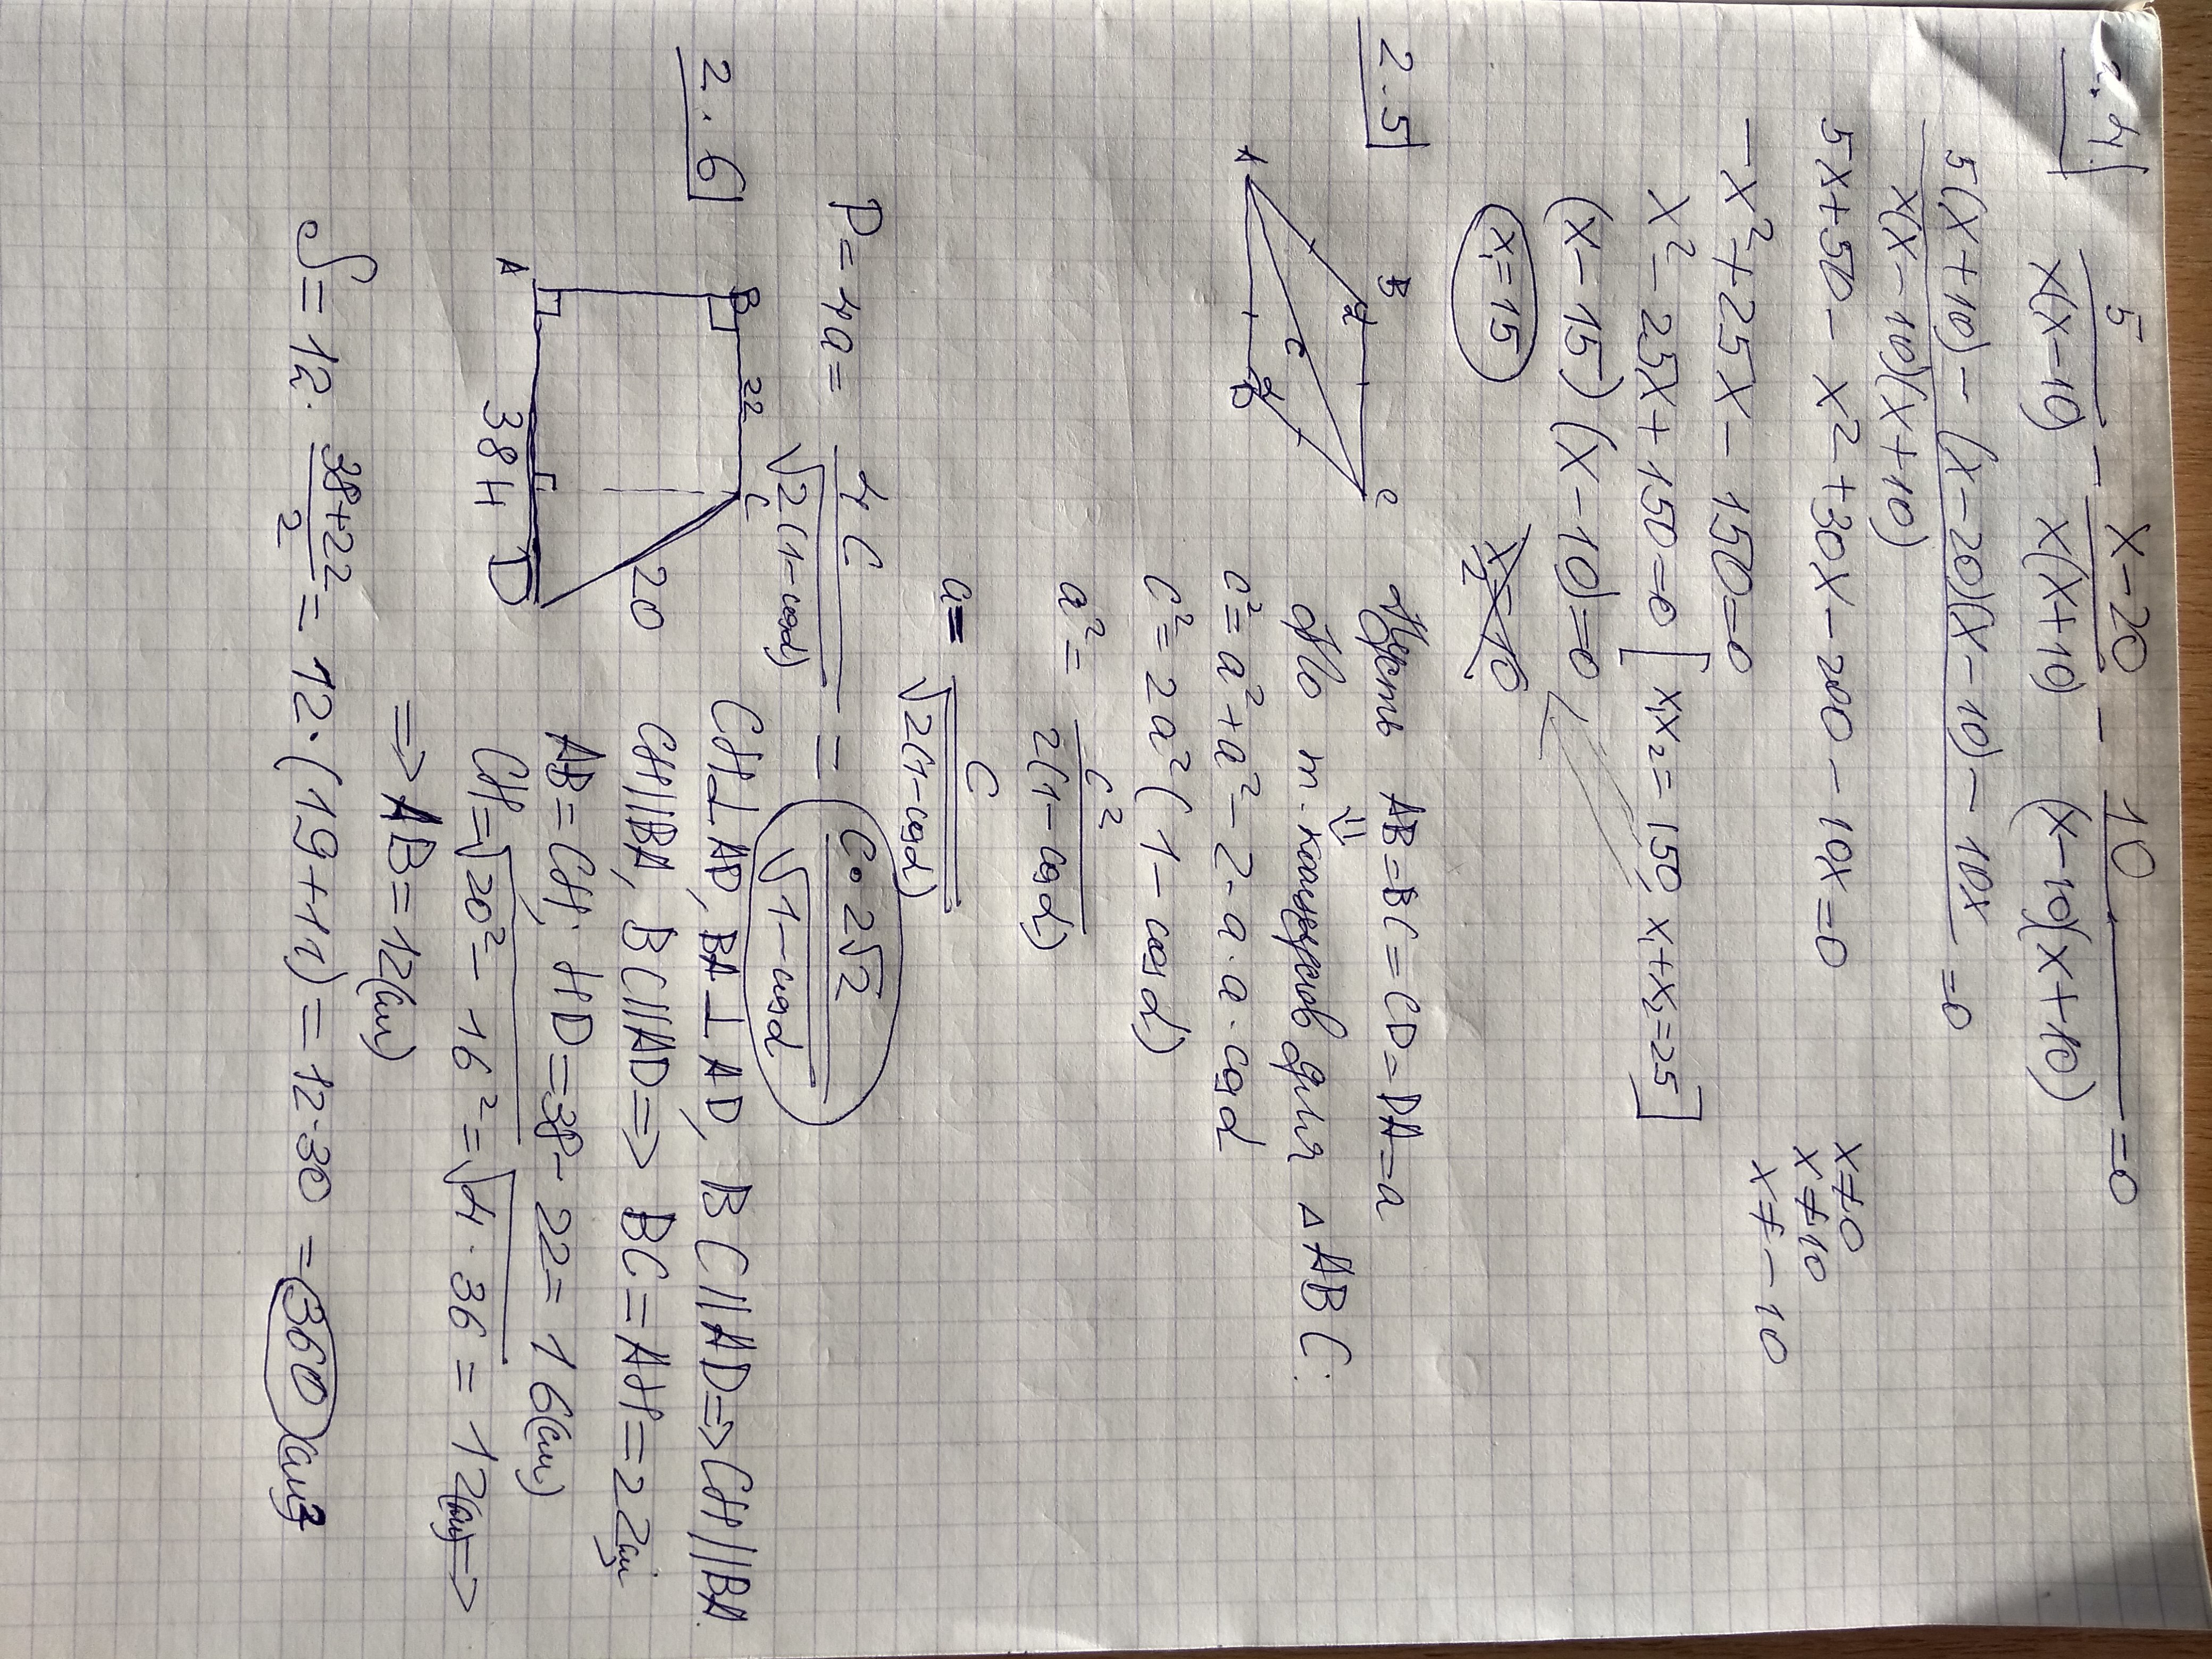 2.4
5/(x(x-10)) - (x-20)/(x(x+10)) - 10/((x-10)(x+10)) = 0
(5(x+10) - (x-20)(x-10) - 10x)/(x(x-10)(x+10)) = 0
5x+50 - x²+30x-200-10x=0
x≠0
x≠10
x≠-10
-x²+25x-150=0
x²-25x+150=0 [x₁x₂=150 x₁+x₂=25]
(x-15)(x-10)=0
x₁=15 x₂=10
2.5
B
C
A
D
c
α
α
Пусть AB=BC=CD=DA=a
⇓
По т. косинусов для △ABC:
c²=a²+a²-2·a·a·cosα
c²=2a²(1-cosα)
a²= c²/(2(1-cosα))
a= c/√(2(1-cosα))
P=4a= 4c/√(2(1-cosα)) = c·2√2/√(1-cosα)
2.6
B 22 C
20
A
38 H D
CH⊥AD, BA⊥AD, BC||AD=>CH||BA
CH||BA, BC||AD=>BC=AH=22см
AB=CH; HD=38-22=16(см)
CH=√20²-16²=√4·36=12(см)=>
=>AB=12(см)
S=12·(38+22)/2=12·(19+11)=12·30=360(см²)